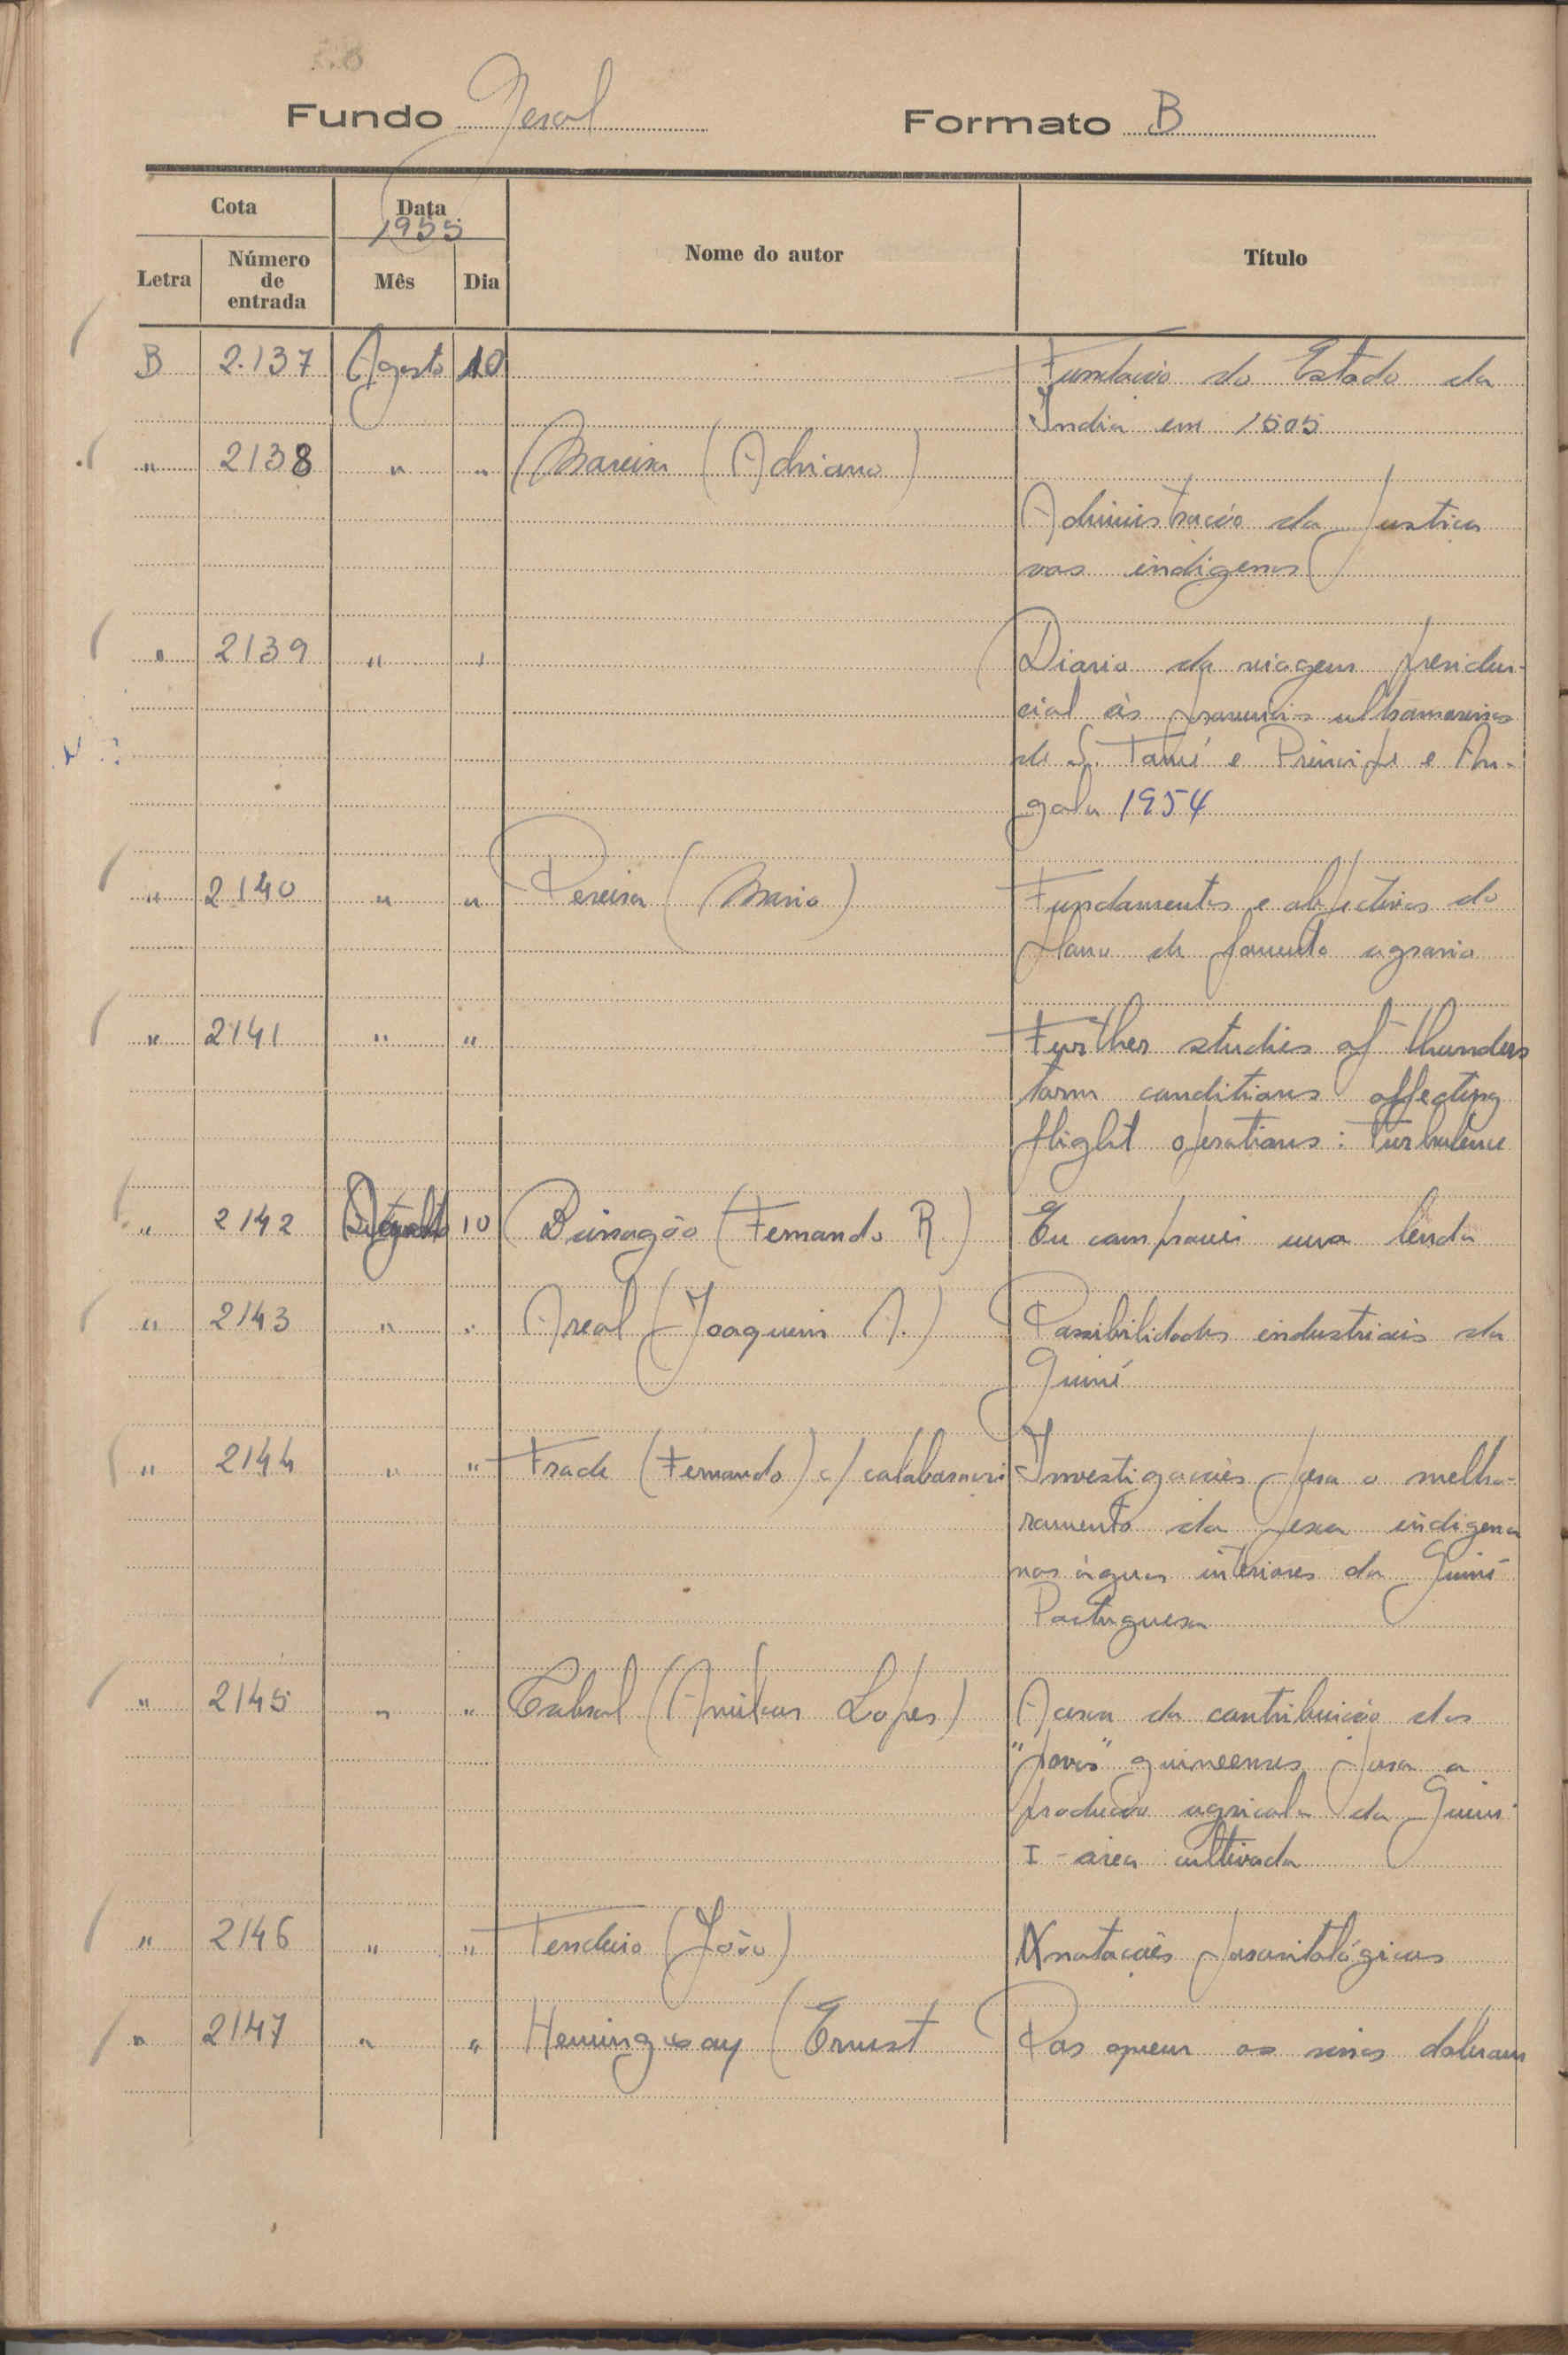 Fundo Geral Formato B
Cota Data Nome do autor Título
1955
Letra Número de entrada Mês Dia
B 2.137 Agosto 10 Fundação do Estado da
Índia em 1505
" 2138 " " Moreira (Adriano)
Administração da Justiça
aos indígenas
" 2139 " " Diario da viagem presiden-
cial às provincias ultramarinas
de S. Tomé e Príncipe e An-
gola 1954
" 2140 " " Pereira (Mario) Fundamentos e objectivos do
plano de fomento agrario
" 2141 " " Further studies of thunders
torm conditions affecting
flight operations: Turbulence
" 2142 Agosto 10 (Fernando R.) Eu comprovei uma lenda
" 2143 " " Areal (Joaquim A.) Possibilidades industriais da
Guiné
" 2144 " " Frade (Fernando) c/ Investigações para o melho-
ramento da pesca indigena
nas águas interiores da Guiné
Portuguesa
" 2145 " " Cabral (Amilcar Lopes) Acerca da contribuição dos
"povos" guineenses para a
produção agricola da Guiné
I - área cultivada
" 2146 " " Tendeiro (João) Anotações parasitológicas
" 2147 " " Hemingway (Ernest Por quem os sinos dobram